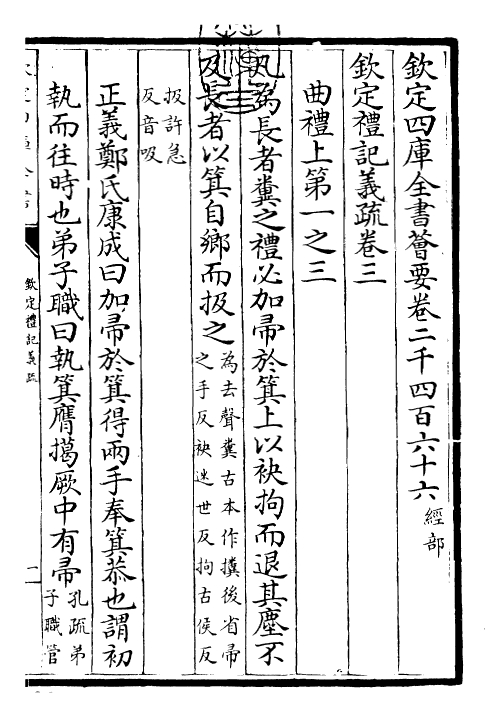 欽定四庫全書薈要卷二千四百六十六經部
欽定禮記義疏卷三
曲禮上第一之三
凡為長者糞之禮必加帚於箕上以袂拘而退其塵不
及長者以箕自鄉而扱之為去聲糞古本作㩔後省帚
之手反袂迷世反拘古侯反
扱許急
反音吸
正義鄭氏康成曰加帚於箕得兩手奉箕恭也謂初
執而往時也弟子職曰執箕膺擖厥中有帚孔疏弟
子職管
欽定禮記義疏
一